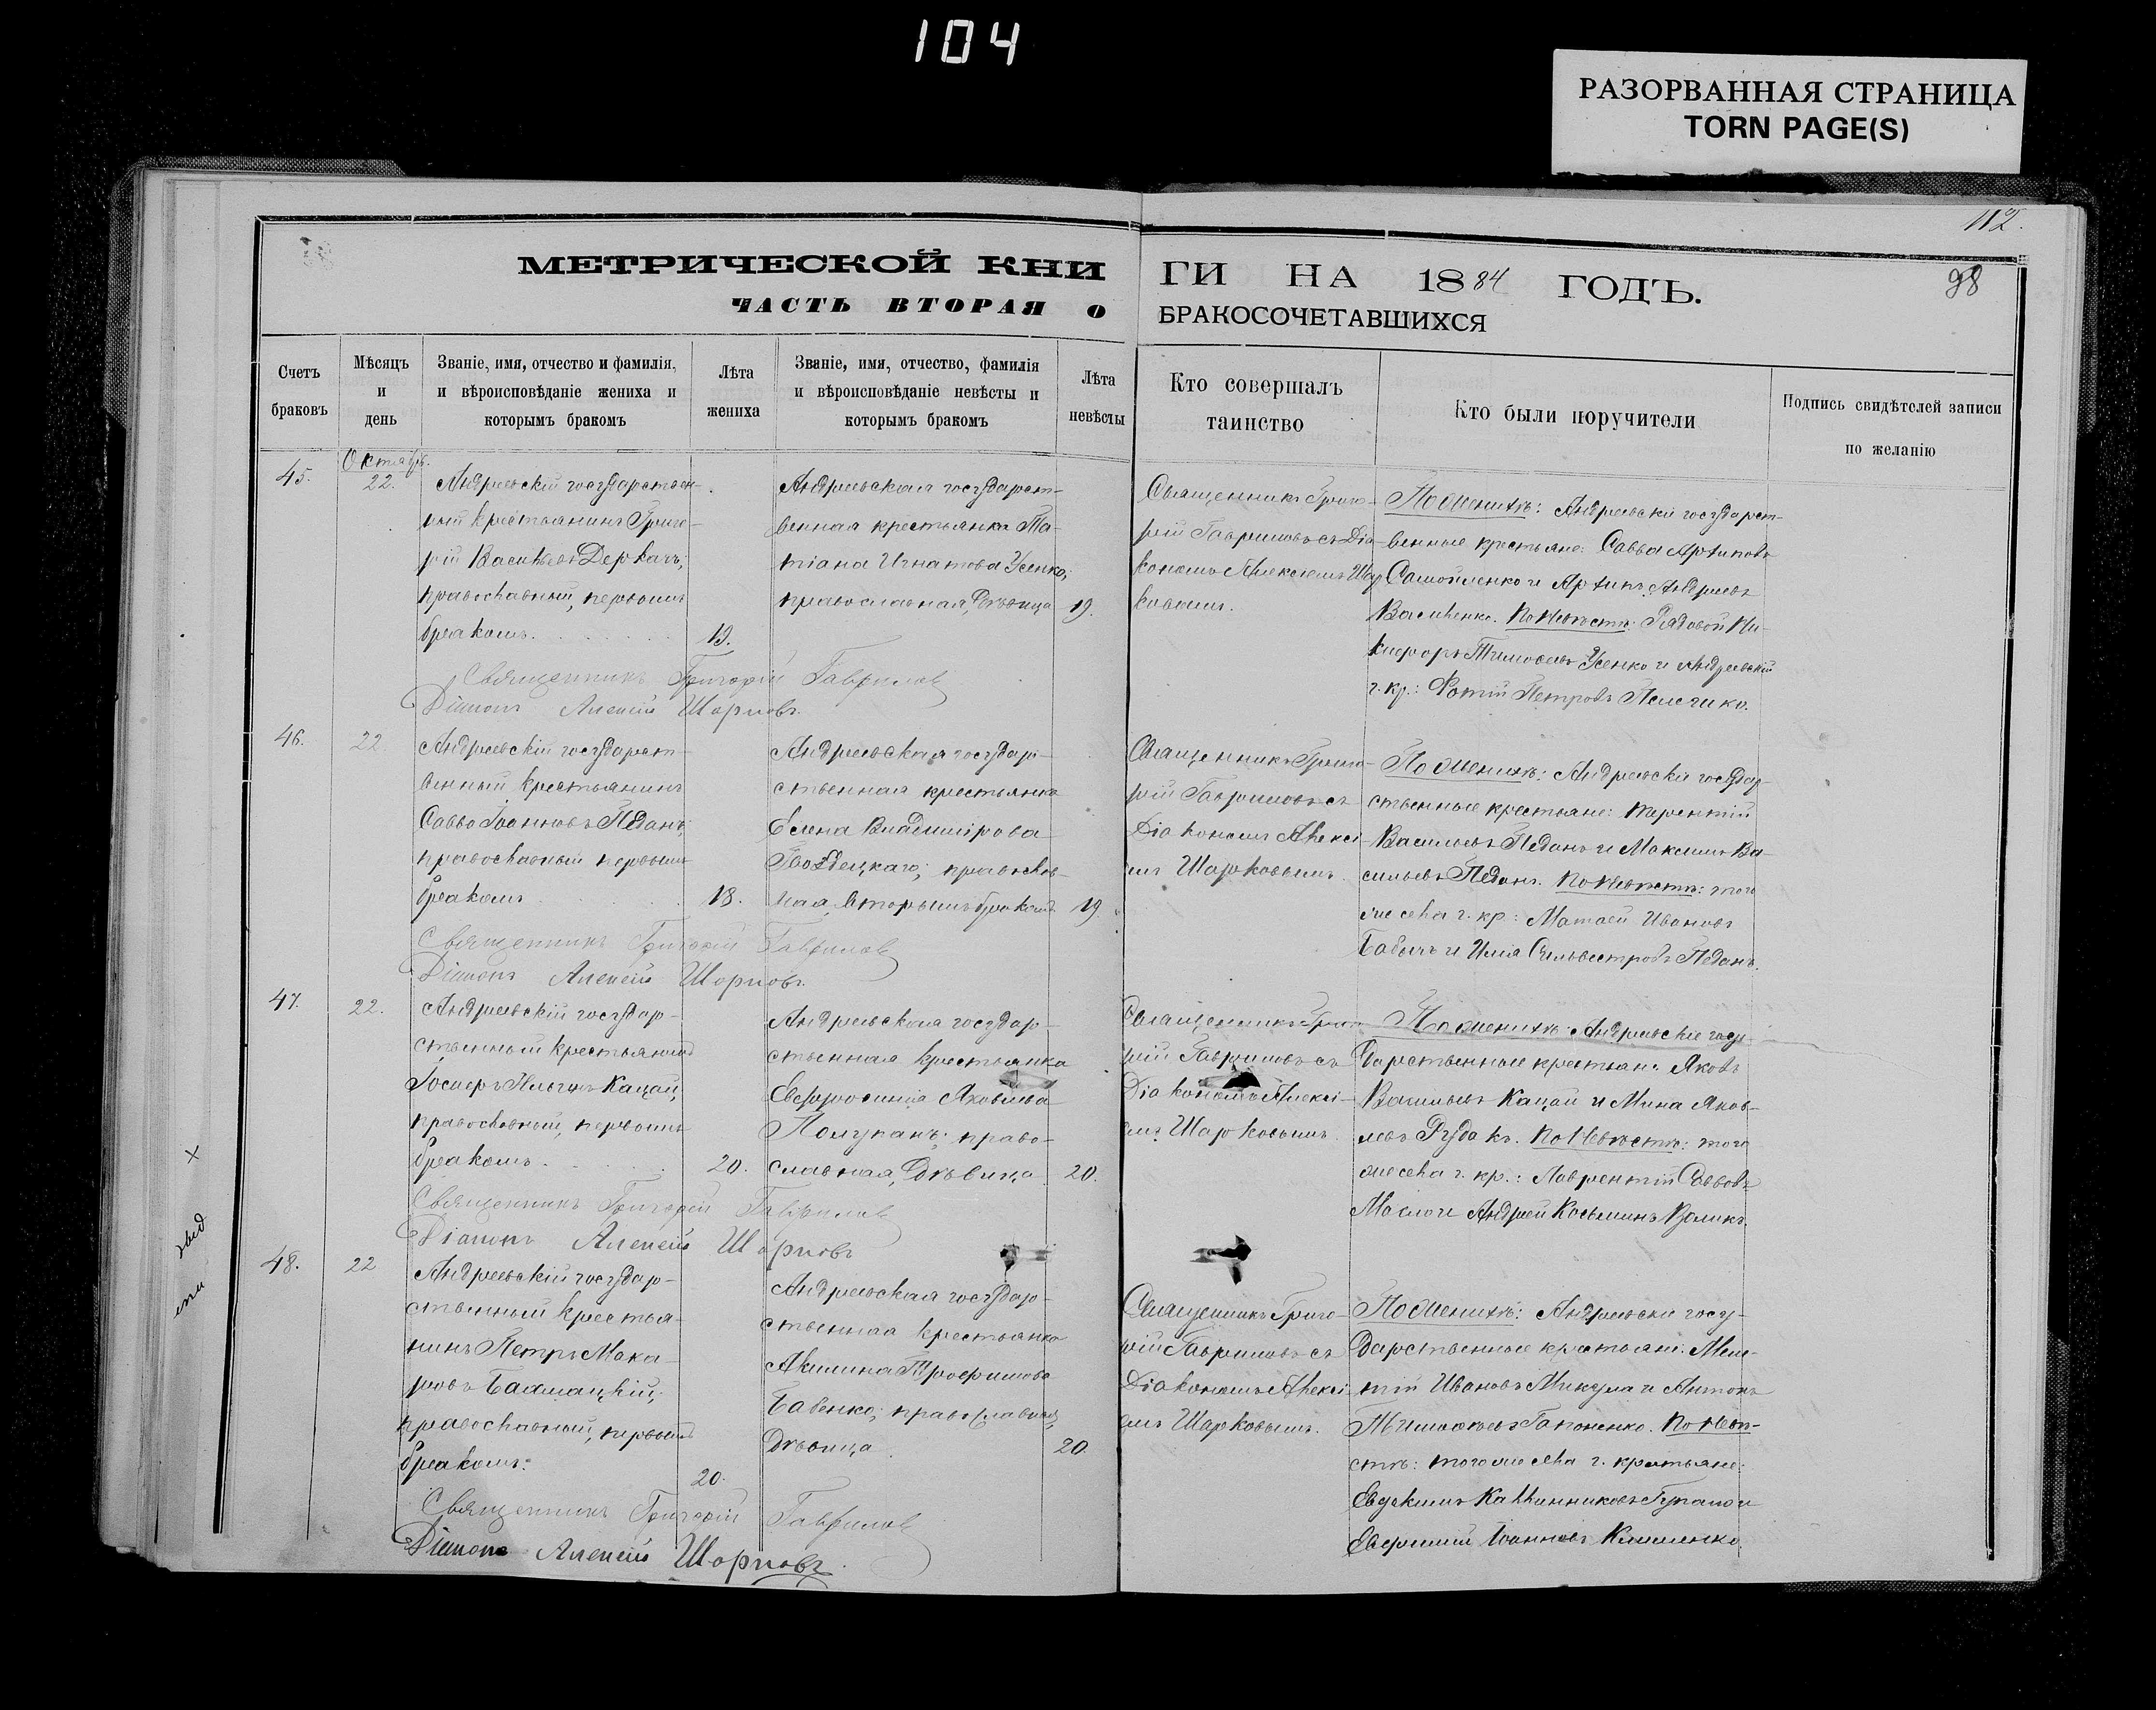 104
РАЗОРВАННАЯ СТРАНИЦА
TORN PAGE(S)
112.
98
МЕТРИЧЕСКОЙ КНИГИ НА 1884 ГОДЪ.
ЧАСТЬ ВТОРАЯ О БРАКОСОЧЕТАВШИХСЯ
Счетъ
браковъ
Мѣсяцъ
и
день
Званіе, имя, отчество и фамилія,
и вѣроисповѣданіе жениха и
которымъ бракомъ
Лѣта
жениха
Званіе, имя, отчество, фамилія
и вѣроисповѣданіе невѣсты и
которымъ бракомъ
Лѣта
невѣсты
Кто совершалъ
таинство
Кто были поручители
Подпись свидѣтелей записи
по желанію
45.
Октябр.
22.
Андреевскій государствен-
ный крестьянинъ Григо-
рій Васильевъ Деркачъ;
православный, первымъ
бракомъ.
19.
Андреевская государст-
венная крестьянка Та-
тіана Игнатова Усенко;
православная, Дѣвица
19.
Священникъ Григо-
рій Гавриловъ съ Діа-
кономъ Алексіемъ Шар
ковымъ.
По женихѣ: Андреевскіе государст-
венные крестьяне: Савва Архиповъ
Самойленко и Архипъ Андреевъ
Василенко. По невѣстѣ: Рядовой Ни-
кифоръ Тимофеевъ Усенко и Андреевскій
г. кр.: Фотій Петровъ
Священникъ Григорій Гавриловъ
Діаконъ Алексій Шарковъ.
46.
22.
Андреевскій государст-
венный крестьянинъ
Савва Іоанновъ Педанъ;
православный первымъ
бракомъ
18.
Андреевская государ-
ственная крестьянка
Елена Владимірова
Гвоздецкаго; православ-
ная, вторымъ бракомъ
19
Священникъ Григо-
рій Гавриловъ съ
Діакономъ Алексі-
емъ Шарковымъ
По женихѣ: Андреевскіе государ-
ственные крестьяне: Терентій
Васильевъ Педанъ и Максимъ Ва-
сильевъ Педанъ. По невѣстѣ: того
же села г. кр: Матвей Ивановъ
Бабичъ и Илія Сильвестровъ Педанъ.
Священникъ Григорій Гавриловъ
Діаконъ Алексій Шарковъ.
47.
22.
Андреевскій государ-
ственный крестьянинъ
Іосифъ Ильинъ Кацай;
православный, первымъ
бракомъ.
20.
Андреевская государ-
ственная крестьянка
Евфросинія Яковлева
Полупанъ; право-
славная, Дѣвица
20.
Священникъ Григо-
рій Гавриловъ съ
Діакономъ Алексі-
емъ Шарковымъ.
По женихѣ: Андреевскіе госу-
дарственные крестьян: Яковъ
Васильевъ Кацай и Мина Яков-
левъ Рудакъ. По невѣстѣ: того
же села г. кр.: Лаврентій Саввовъ
Масло и Андрей Косьминъ Воликъ.
Священникъ Григорій Гавриловъ
Діаконъ Алексій Шарковъ
48.
22
Андреевскій государ-
ственный крестья-
нинъ Петръ Мака-
ровъ Бахмацкій;
православный, первымъ
бракомъ:
20.
Андреевская государ-
ственная крестьянка
Акилина Трофимова
Бабенко; православная,
Дѣвица
20
Священникъ Григо-
рій Гавриловъ съ
Діакономъ Алексі
емъ Шарковымъ.
По женихѣ: Андреевскіе госу-
дарственные крестьяне: Меле-
тій Ивановъ Микула и Антонъ
Тимофеевъ Гапоненко. По невѣ-
стѣ: того же села г. крестьяне:
Евдокимъ Каллинниковъ и
Евфимій Іоанновъ Клименко
Священникъ Григорій Гавриловъ
Діаконъ Алексій Шарковъ.